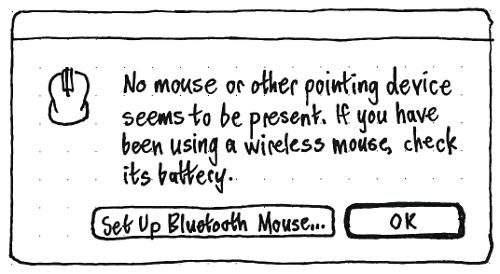 No mouse or other pointing device
seems to be present. If you have
been using a wireless mouse, check
its battery.
Set Up Bluetooth Mouse...
OK